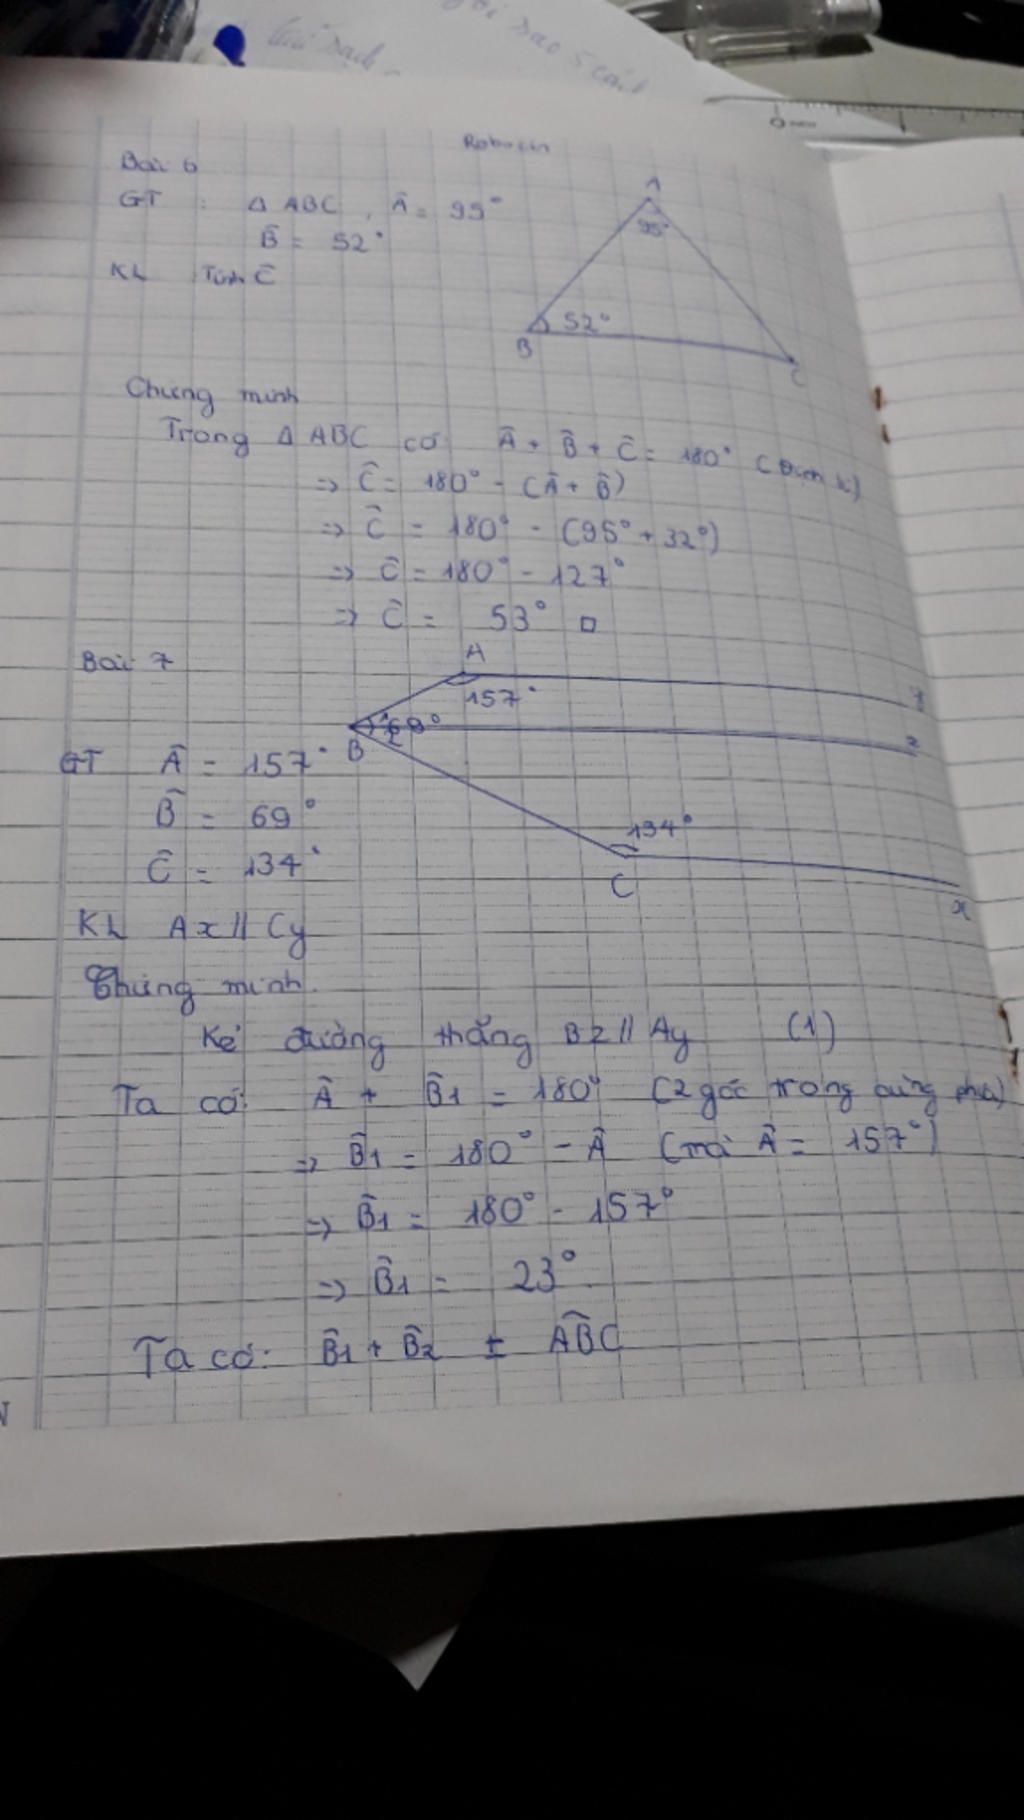 Bài 6
GT : Δ ABC, Â = 99°
B̂ = 52°
KL Tính Ĉ
A
95°
52°
B
C
Chứng minh
Trong Δ ABC có Â + B̂ + Ĉ = 180° (
⇒ Ĉ = 180° - (Â + B̂)
⇒ Ĉ = 180° - (95° + 32°)
⇒ Ĉ = 180° - 127°
⇒ Ĉ = 53° □
Bài 7
A
157°
y
B
z
134°
C
x
GT Â = 157°
B̂ = 69°
Ĉ = 134°
KL Ax // Cy
Chứng minh.
Kẻ đường thẳng Bz // Ay (1)
Ta có: Â + B̂1 = 180° (2 góc trong cùng phía)
⇒ B̂1 = 180° - Â (mà Â = 157°)
⇒ B̂1 = 180° - 157°
⇒ B̂1 = 23°
Ta có: B̂1 + B̂2 = ABC